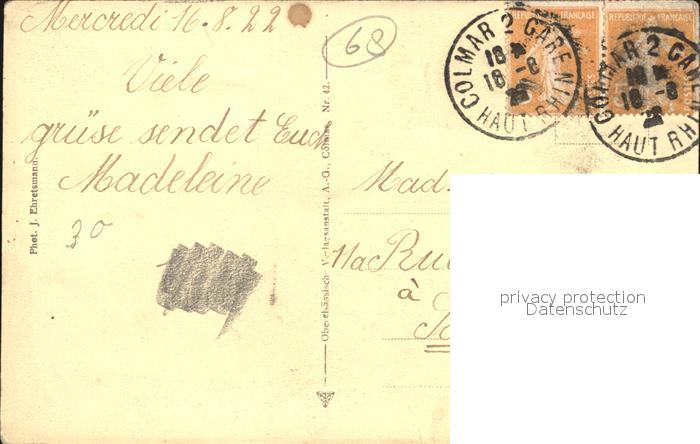 Mercredi 16.8.22
Viele
grüse sendet Euch
Madeleine
30
68
Phot. J. Ehretsmann.
Oberelsässische Verlagsanstalt, A.-G., Colmar, Nr. 42.
REPUBLIQUE FRANÇAISE
REPUBLIQUE FRANÇAISE
COLMAR 2 GARE
18
18 -8
HAUT RHIN
COLMAR 2 GARE
18
18 -8
HAUT RH
Mad.
11a Rue
à
privacy protection
Datenschutz